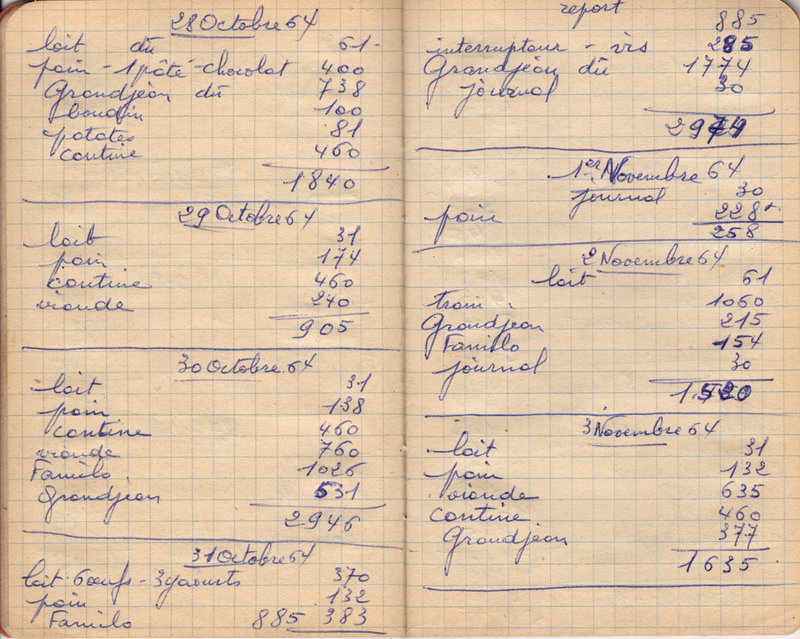 28 Octobre 64
lait dû 61-
pain - 1 pâté - chocolat 400
Grandjean dû 738
boudin 100
patates 81
cantine 460
1840
29 Octobre 64
lait 31
pain 174
cantine 460
viande 240
905
30 Octobre 64
lait 31
pain 138
cantine 460
viande 760
Familo 1026
Grandjean 531
2946
31 Octobre 64
lait 6 œufs - 3 yaourts 370
pain 132
Familo 885 383
report 885
interrupteur - vis 285
Grandjean dû 1774
journal 30
2974
1er Novembre 64
journal 30
pain 228
258
2 Novembre 64
lait 61
train 1060
Grandjean 215
Familo 154
journal 30
1520
3 Novembre 64
lait 31
pain 132
viande 635
cantine 460
Grandjean 377
1635